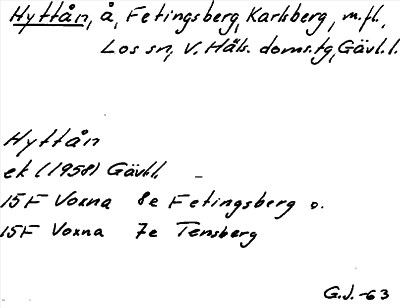 Hyttån, å, Fetingsberg, Karlsberg, m.fl.,
Los sn, V. Häls. doms.tg, Gävl.l.
Hyttån
ek (1958) Gävl.l.
15F Voxna 8e Fetingsberg o.
15F Voxna 7e Tensberg
G.J. -63